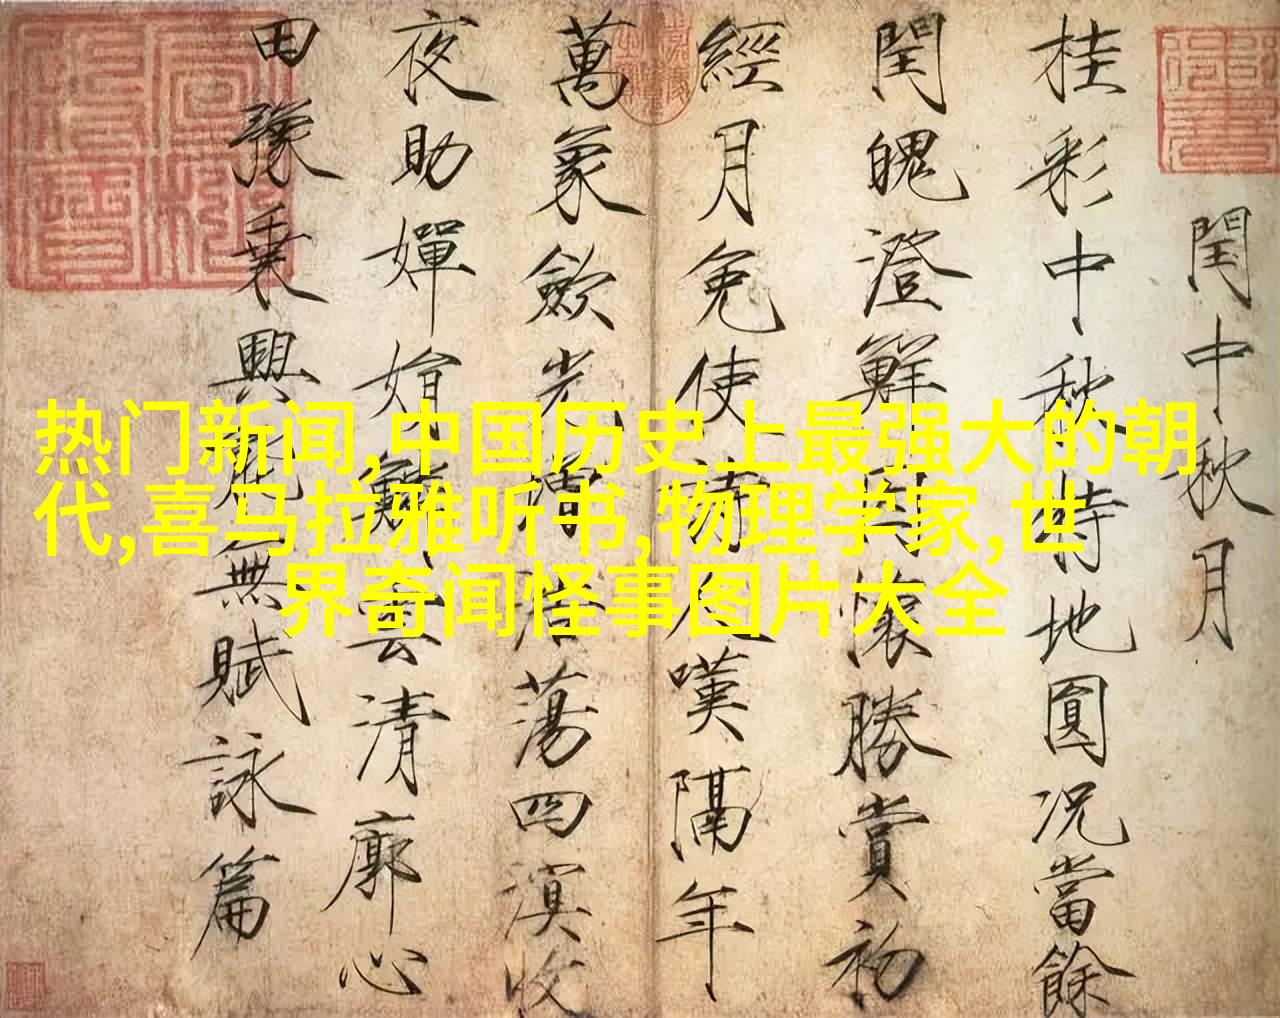 热门新闻,中国历史上最强大的朝
代,喜马拉雅听书,物理学家,世
界奇闻怪事图片大全
閏中秋月
桂彩中秋特地圓况當餘
閏魄澄鮮因懷勝賞初
經月免使詩人嘆隔年
萬象斂光增浩蕩四溟收
夜助嬋娟鱗雲清廓心
田豫乗興能無賦詠篇